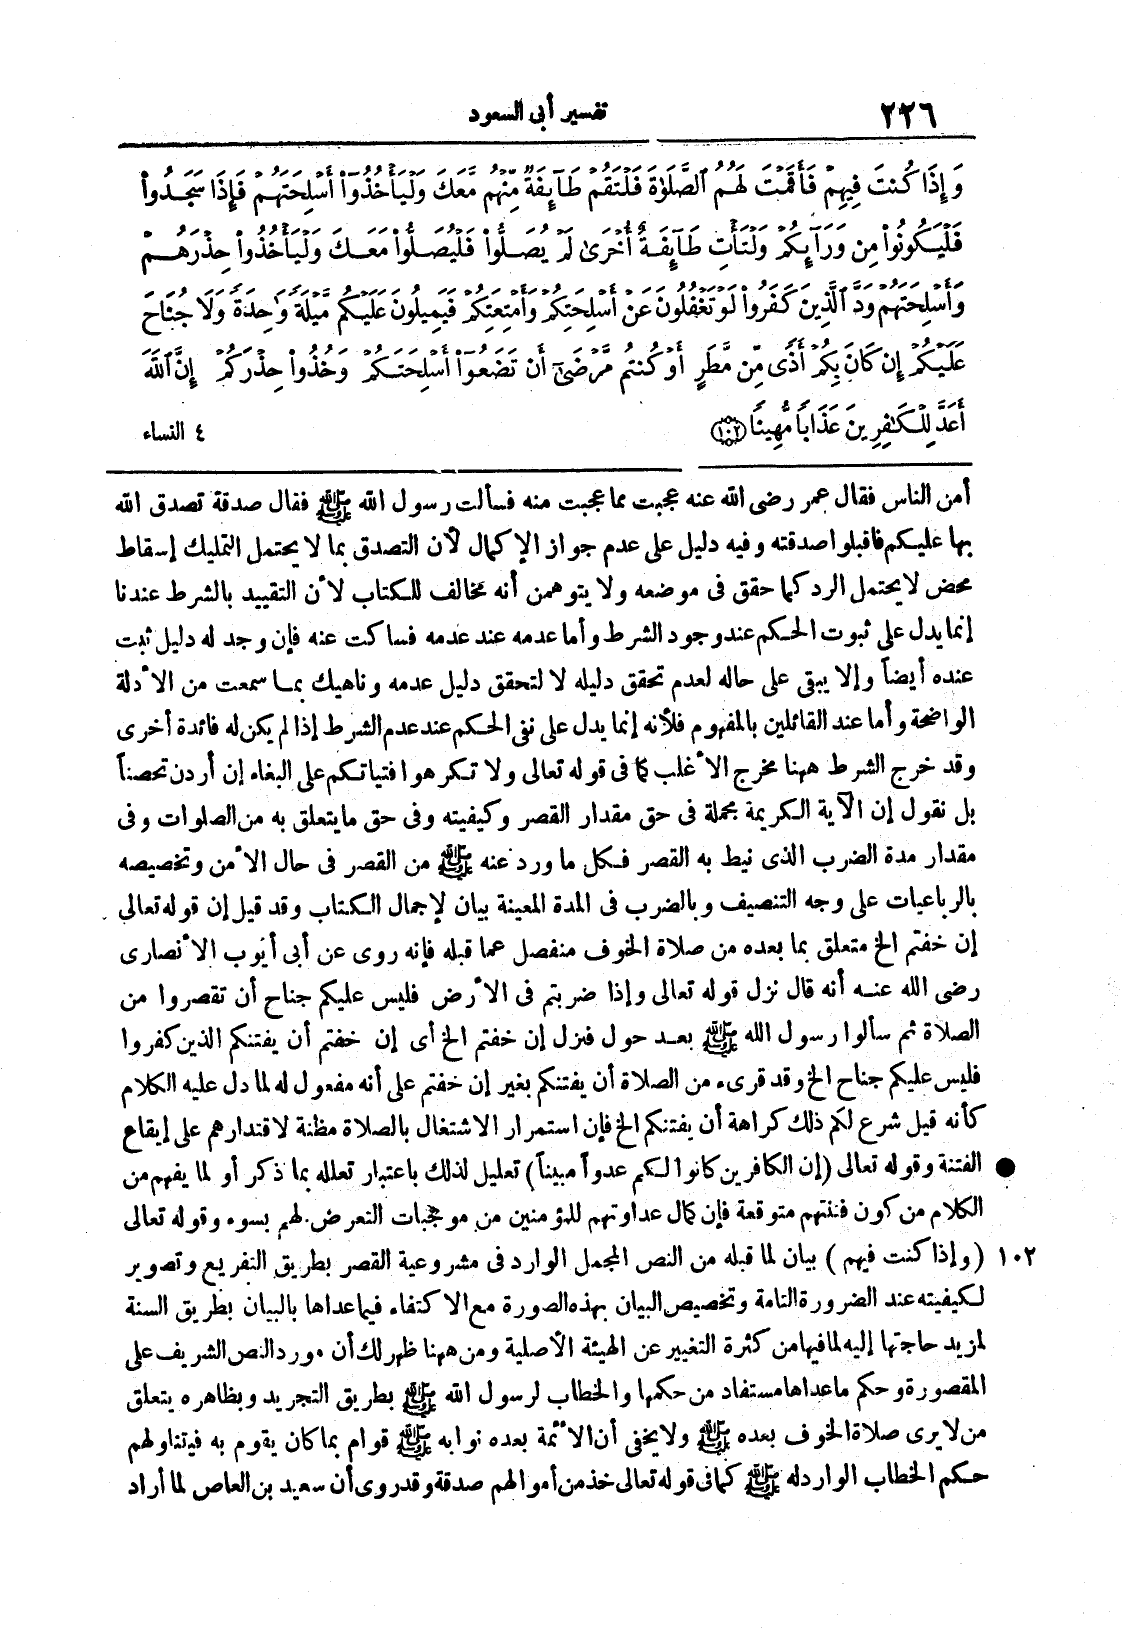 ٢٢٦
تفسير أبى السعود
وَإِذَا كُنتَ فِيهِمْ فَأَقَمْتَ لَهُمُ ٱلصَّلَوٰةَ فَلْتَقُمْ طَآئِفَةٌ مِّنْهُم مَّعَكَ وَلْيَأْخُذُوٓا۟ أَسْلِحَتَهُمْ فَإِذَا سَجَدُوا۟
فَلْيَكُونُوا۟ مِن وَرَآئِكُمْ وَلْتَأْتِ طَآئِفَةٌ أُخْرَىٰ لَمْ يُصَلُّوا۟ فَلْيُصَلُّوا۟ مَعَكَ وَلْيَأْخُذُوا۟ حِذْرَهُمْ
وَأَسْلِحَتَهُمْ وَدَّ ٱلَّذِينَ كَفَرُوا۟ لَوْ تَغْفُلُونَ عَنْ أَسْلِحَتِكُمْ وَأَمْتِعَتِكُمْ فَيَمِيلُونَ عَلَيْكُم مَّيْلَةً وَٰحِدَةً وَلَا جُنَاحَ
عَلَيْكُمْ إِن كَانَ بِكُمْ أَذًى مِّن مَّطَرٍ أَوْ كُنتُم مَّرْضَىٰٓ أَن تَضَعُوٓا۟ أَسْلِحَتَكُمْ وَخُذُوا۟ حِذْرَكُمْ إِنَّ ٱللَّهَ
أَعَدَّ لِلْكَٰفِرِينَ عَذَابًا مُّهِينًا ١٠٢ ٤ النساء
أمن الناس فقال عمر رضى الله عنه عجبت مما عجبت منه فسألت رسول الله ﷺ فقال صدقة تصدق الله
بها عليكم فاقبلوا صدقته وفيه دليل على عدم جواز الإكمال لأن التصدق بما لا يحتمل التمليك إسقاط
محض لا يحتمل الرد كما حقق فى موضعه ولا يتوهمن أنه مخالف للكتاب لأن التقييد بالشرط عندنا
إنما يدل على ثبوت الحكم عند وجود الشرط وأما عدمه عند عدمه فساكت عنه فإن وجد له دليل ثبت
عنده أيضاً وإلا يبقى على حاله لعدم تحقق دليله لا لتحقق دليل عدمه وناهيك بما سمعت من الأدلة
الواضحة وأما عند القائلين بالمفهوم فلأنه إنما يدل على نفى الحكم عند عدم الشرط إذا لم يكن له فائدة أخرى
وقد خرج الشرط ههنا مخرج الأغلب كما فى قوله تعالى ولا تكرهوا فتياتكم على البغاء إن أردن تحصناً
بل نقول إن الآية الكريمة مجملة فى حق مقدار القصر وكيفيته وفى حق ما يتعلق به من الصلوات وفى
مقدار مدة الضرب الذى نيط به القصر فكل ما ورد عنه ﷺ من القصر فى حال الأمن وتخصيصه
بالرباعيات على وجه التنصيف وبالضرب فى المدة المعينة بيان لإجمال الكتاب وقد قيل إن قوله تعالى
إن خفتم الخ متعلق بما بعده من صلاة الخوف منفصل عما قبله فإنه روى عن أبى أيوب الأنصارى
رضى الله عنه أنه قال نزل قوله تعالى وإذا ضربتم فى الأرض فليس عليكم جناح أن تقصروا من
الصلاة ثم سألوا رسول الله ﷺ بعد حول فنزل إن خفتم الخ أى إن خفتم أن يفتنكم الذين كفروا
فليس عليكم جناح الخ وقد قرىء من الصلاة أن يفتنكم بغير إن خفتم على أنه مفعول له لما دل عليه الكلام
كأنه قيل شرع لكم ذلك كراهة أن يفتنكم الخ فإن استمرار الاشتغال بالصلاة مظنة لاقتدارهم على إيقاع
● الفتنة وقوله تعالى (إن الكافرين كانوا لكم عدواً مبيناً) تعليل لذلك باعتبار تعلله بما ذكر أو لما يفهم من
الكلام من كون فتنتهم متوقعة فإن كمال عداوتهم للمؤمنين من موجبات التعرض لهم بسوء وقوله تعالى
١٠٢ (وإذا كنت فيهم) بيان لما قبله من النص المجمل الوارد فى مشروعية القصر بطريق التفريع وتصوير
لكيفيته عند الضرورة التامة وتخصيص البيان بهذه الصورة مع الاكتفاء فيما عداها بالبيان بطريق السنة
لمزيد حاجتها إليه لما فيها من كثرة التغيير عن الهيئة الأصلية ومن ههنا ظهر لك أن مورد النص الشريف على
المقصورة وحكم ما عداها مستفاد من حكمها والخطاب لرسول الله ﷺ بطريق التجريد وبظاهره يتعلق
من لا يرى صلاة الخوف بعده ﷺ ولا يخفى أن الأئمة بعده نوابه ﷺ قوام بما كان يقوم به فيتناولهم
حكم الخطاب الوارد له ﷺ كما فى قوله تعالى خذ من أموالهم صدقة وقد روى أن سعيد بن العاص لما أراد